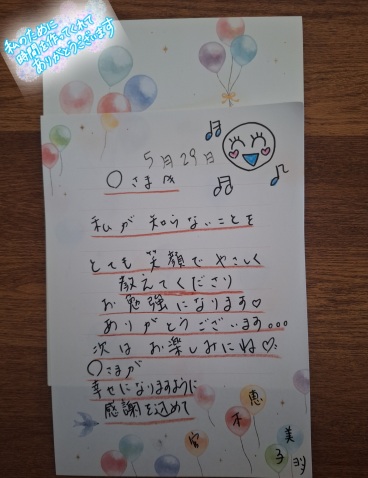 私のために
時間を作ってくれて
ありがとうございます
5月29日
○さま
私が知らないことを
とても笑顔でやさしく
教えてくださり
お勉強になります♡
ありがとうございます...
次はお楽しみにね♡
○さまが
幸せになりますように
感謝を込めて
恵
美